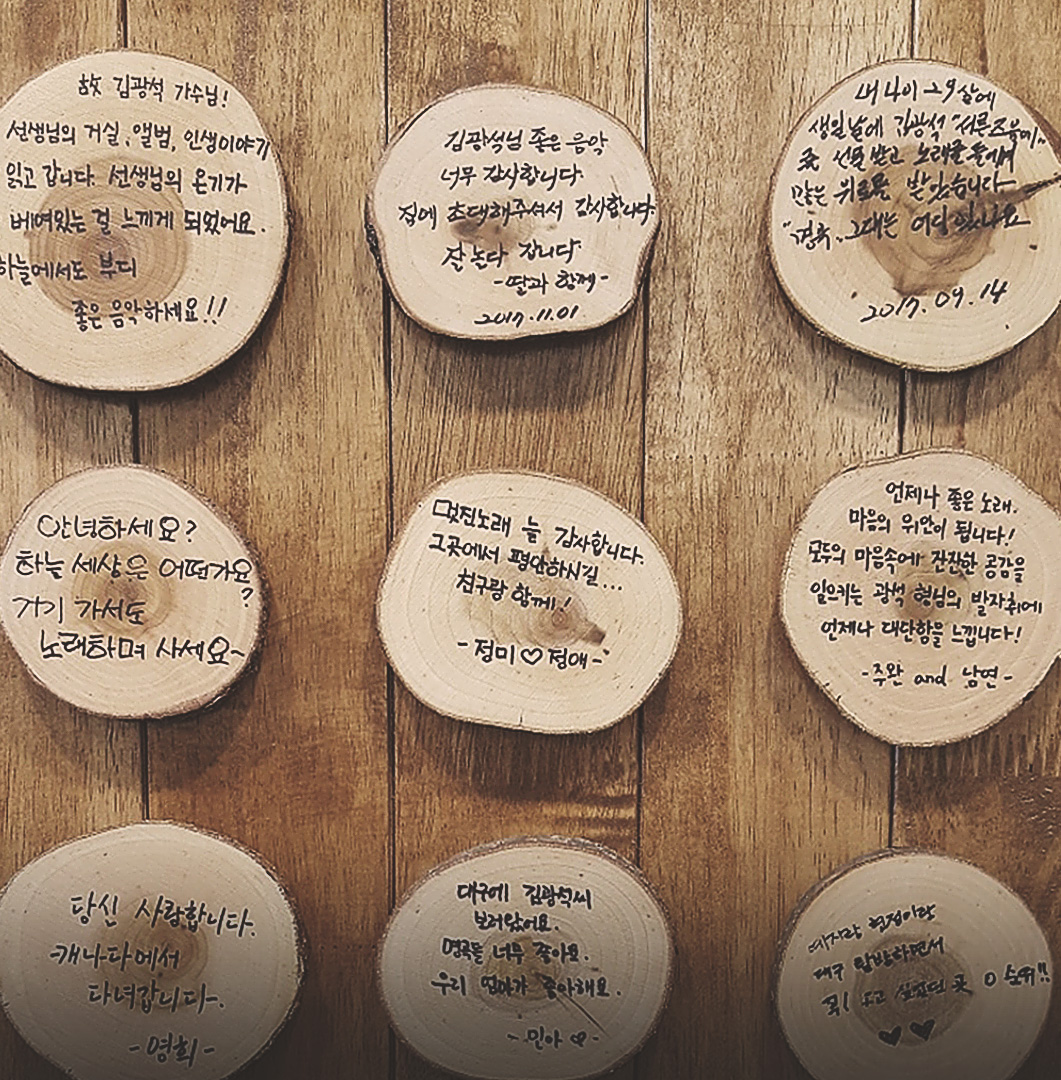 故 김광석 가수님!
선생님의 거실, 앨범, 인생이야기
읽고 갑니다. 선생님의 온기가
베여있는 걸 느끼게 되었어요.
하늘에서도 부디
좋은 음악하세요!!
김광석님 좋은 음악
너무 감사합니다.
집에 초대해주셔서 감사합니다.
잘 놀다 갑니다
-딸과 함께-
2017.11.01
내 나이 29살에
생일날에 김광석 "서른즈음에"
곡 선물 받고 노래를 들으며
많은 위로를 받았습니다
그대는 어딜 있나요
2017.09.14
안녕하세요?
하늘 세상은 어떤가요?
거기 가서도
노래하며 사세요~
멋진노래 늘 감사합니다.
그곳에서 평안하시길...
친구랑 함께!
-정미♡정애-
언제나 좋은 노래.
마음의 위안이 됩니다!
모두의 마음속에 잔잔한 공감을
일으키는 광석 형님의 발자취에
언제나 대단함을 느낍니다!
-주완 and 남연-
당신 사랑합니다.
캐나다에서
다녀갑니다-.
-명희-
대구에 김광석씨
보러왔어요.
명곡들 너무 좋아요.
우리 엄마가 좋아해요.
-민아♡-
현정이랑
대구 탐방하면서
꼭! 오고 싶었던 곳 0순위!!
♥♥